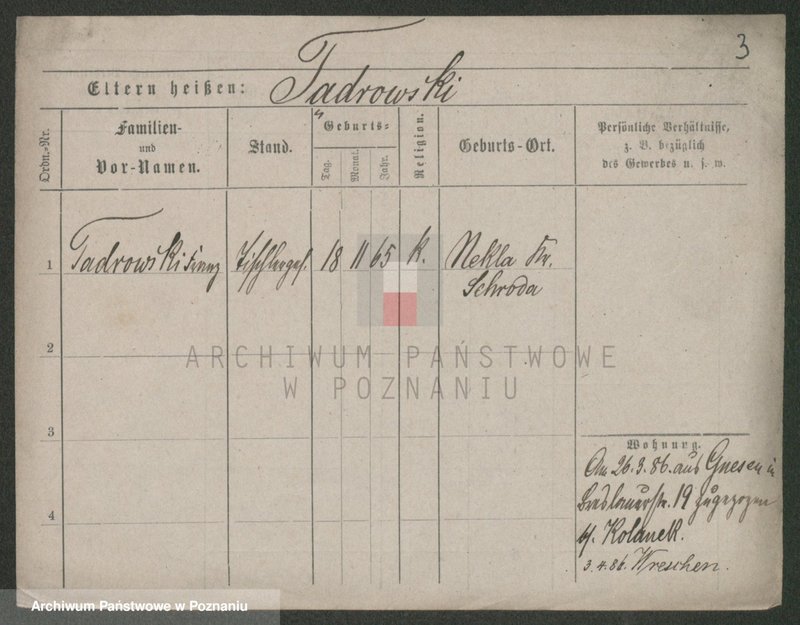 3
Eltern heißen: Tadrowski
Ordn.-Nr.
Familien-
und
Vor-Namen.
Stand.
Geburts-
Tag.
Monat.
Jahr.
Religion.
Geburts-Ort.
Persönliche Verhältnisse,
z. B. bezüglich
des Gewerbes u. s. w.
1 Tadrowski Franz Tischlerges. 18 11 65 k. Nekla Kr.
Schroda
2
ARCHIWUM PAŃSTWOWE
W POZNANIU
3
Wohnung.
Am 26.3.86. aus Gnesen in
Breslauerstr. 19 zugezogen
4
Kolanek.
3.4.86. Wreschen.
Archiwum Państwowe w Poznaniu